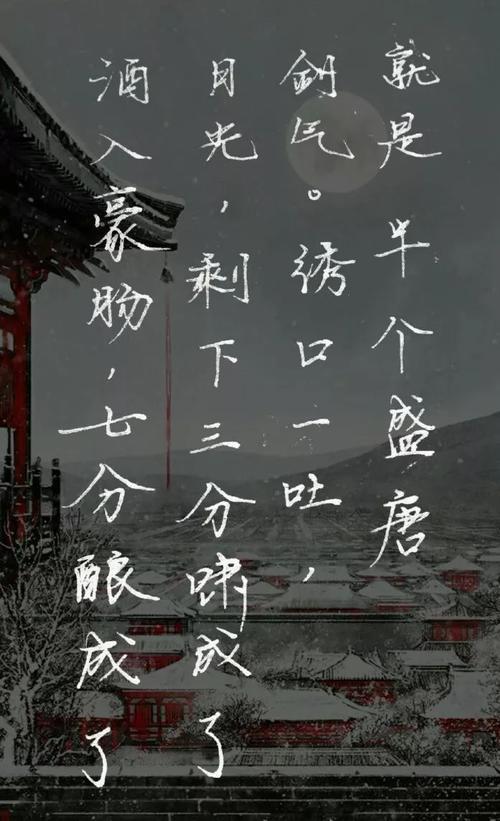 酒入豪肠,七分酿成了
月光,剩下三分啸成了
剑气。绣口一吐,
就是半个盛唐